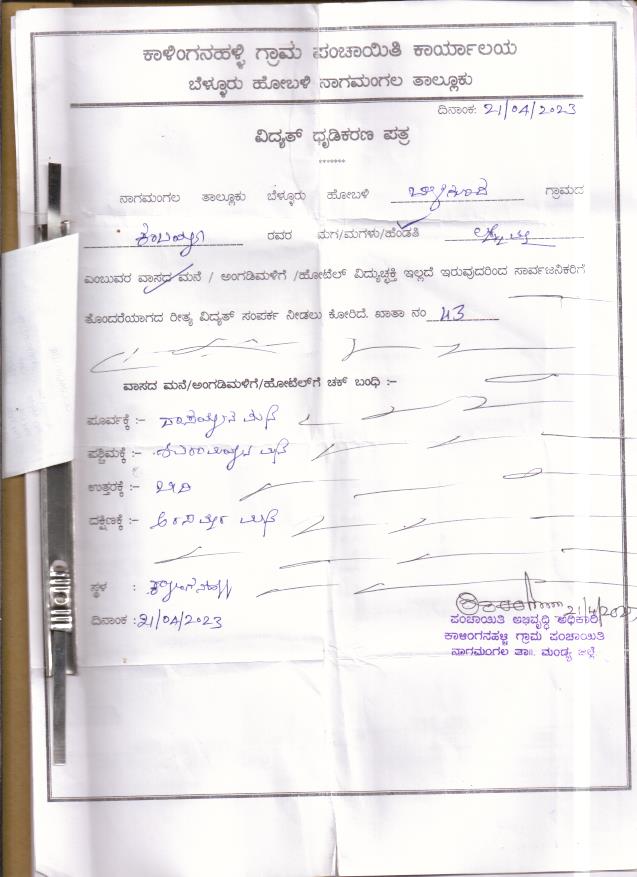 ಕಾಳಿಂಗನಹಳ್ಳಿ ಗ್ರಾಮ ಪಂಚಾಯಿತಿ ಕಾರ್ಯಾಲಯ
ಬೆಳ್ಳೂರು ಹೋಬಳಿ ನಾಗಮಂಗಲ ತಾಲ್ಲೂಕು
ದಿನಾಂಕ: 21/04/2023
ವಿದ್ಯತ್ ಧೃಡಿಕರಣ ಪತ್ರ
*******
ನಾಗಮಂಗಲ ತಾಲ್ಲೂಕು ಬೆಳ್ಳೂರು ಹೋಬಳಿ ಗ್ರಾಮದ
ರವರ ಮಗ/ಮಗಳು/ಹೆಂಡತಿ
ಎಂಬುವರ ವಾಸದ ಮನೆ / ಅಂಗಡಿಮಳಿಗೆ /ಹೋಟೆಲ್ ವಿದ್ಯುಚ್ಛಕ್ತಿ ಇಲ್ಲದೆ ಇರುವುದರಿಂದ ಸಾರ್ವಜನಿಕರಿಗೆ
ತೊಂದರೆಯಾಗದ ರೀತ್ಯ ವಿದ್ಯತ್ ಸಂಪರ್ಕ ನೀಡಲು ಕೋರಿದೆ. ಖಾತಾ ನಂ 43
ವಾಸದ ಮನೆ/ಅಂಗಡಿಮಳಿಗೆ/ಹೋಟೆಲ್‌ಗೆ ಚಕ್ ಬಂಧಿ :-
ಪೂರ್ವಕ್ಕೆ :- ಮನೆ
ಪಶ್ಚಿಮಕ್ಕೆ :- ಮನೆ
ಉತ್ತರಕ್ಕೆ :-
ದಕ್ಷಿಣಕ್ಕೆ :- ಮನೆ
ಸ್ಥಳ :
ದಿನಾಂಕ : 21/04/2023
ಪಂಚಾಯಿತಿ ಅಭಿವೃದ್ಧಿ ಅಧಿಕಾರಿ
ಕಾಳಿಂಗನಹಳ್ಳಿ ಗ್ರಾಮ ಪಂಚಾಯಿತಿ
ನಾಗಮಂಗಲ ತಾ॥ ಮಂಡ್ಯ ಜಿಲ್ಲೆ